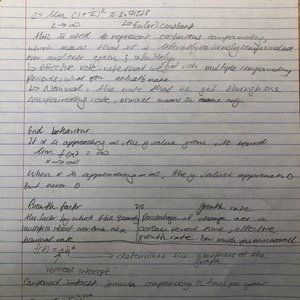 e = lim (1+1/k)^k ≈ 2.71828
k→∞ ↳ Euler's constant
this is used to represent continuous compounding,
which means that it is literally compounded
over and over again; infinitely
↳ Effective rate: rate that we get with multiple compounding
periods, what one actually
↳ Nominal: the rate that we get through one
compounding rate, nominal means in name only.
End behaviour
If x is approaching ∞, the y value grows w/o bound
lim f(x) = ∞
x→∞
When x is approaching -∞, the y values approach 0
but never 0
Growth factor vs growth rate
the factor by which the quantity percentage of change over a
multiplies itself over time certain period time, effective
nominal rate growth rate
→ determines the steepness of the
vertical intercept graph
Compound interest formula compounding n times per year